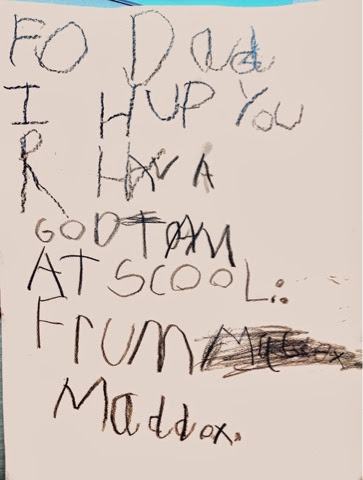 FO Dad
I HUP YOU
R HAV A
GOD TAM
AT SCOOL:.
FrUM
Maddox.